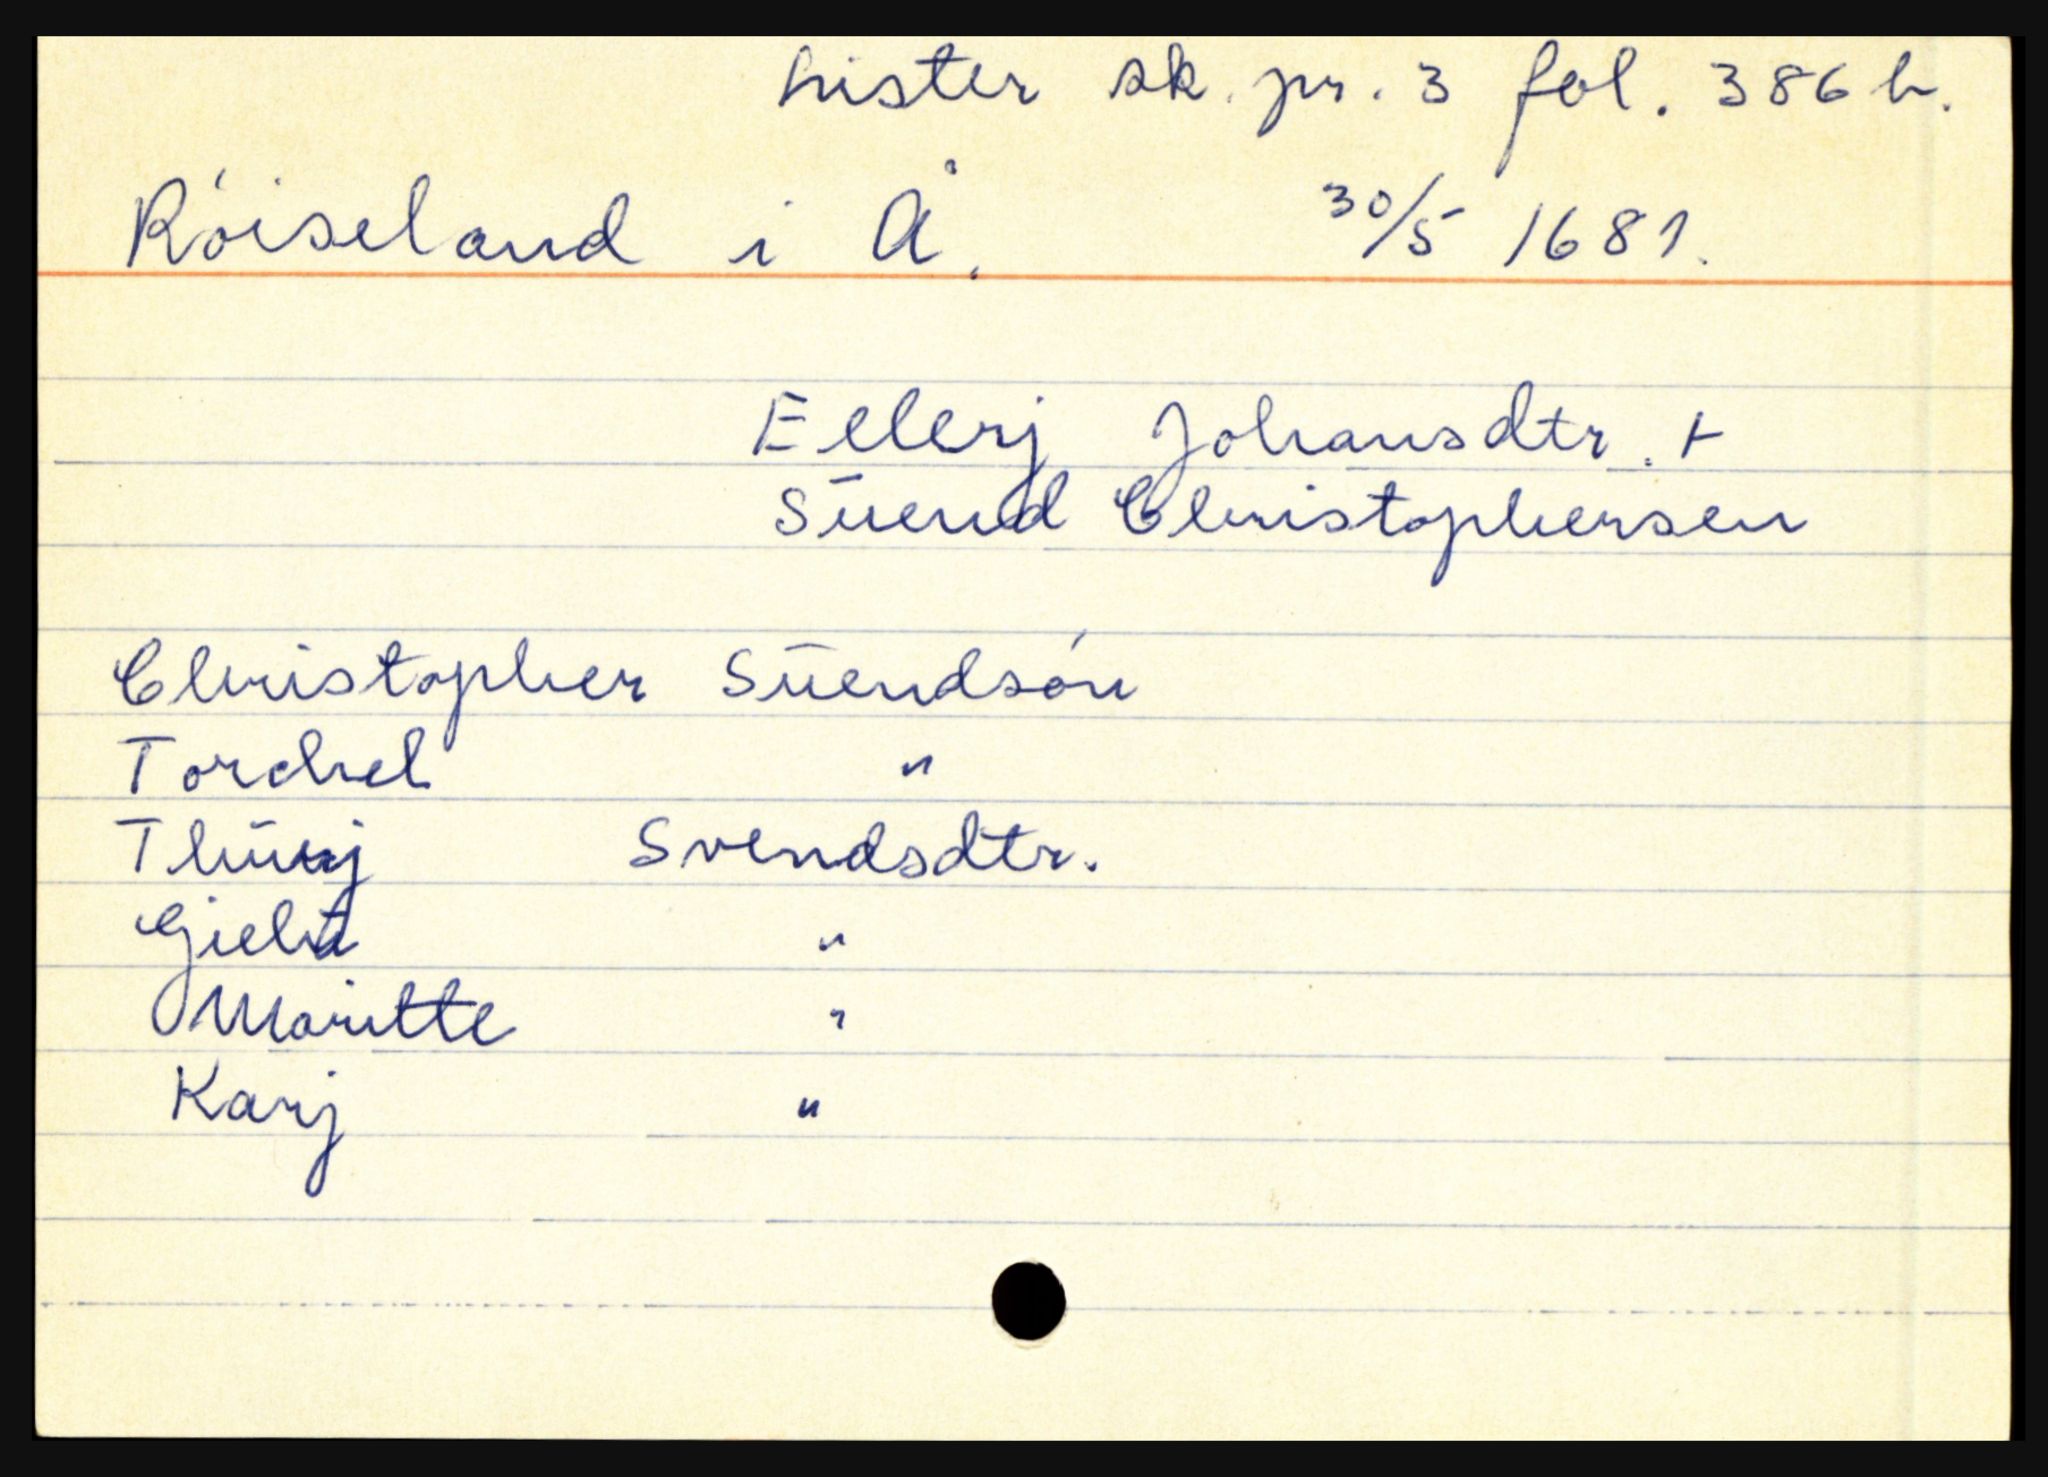 Lister sk. pr. 3 fol. 386 b.
Róiseland i Å. 30/5 1681.
Eelerj Johansdtr. +
Sūend Christophersen
Christopher Sūendsón
Torchel "
Svendsdtr.
"
Maritte "
Karj "